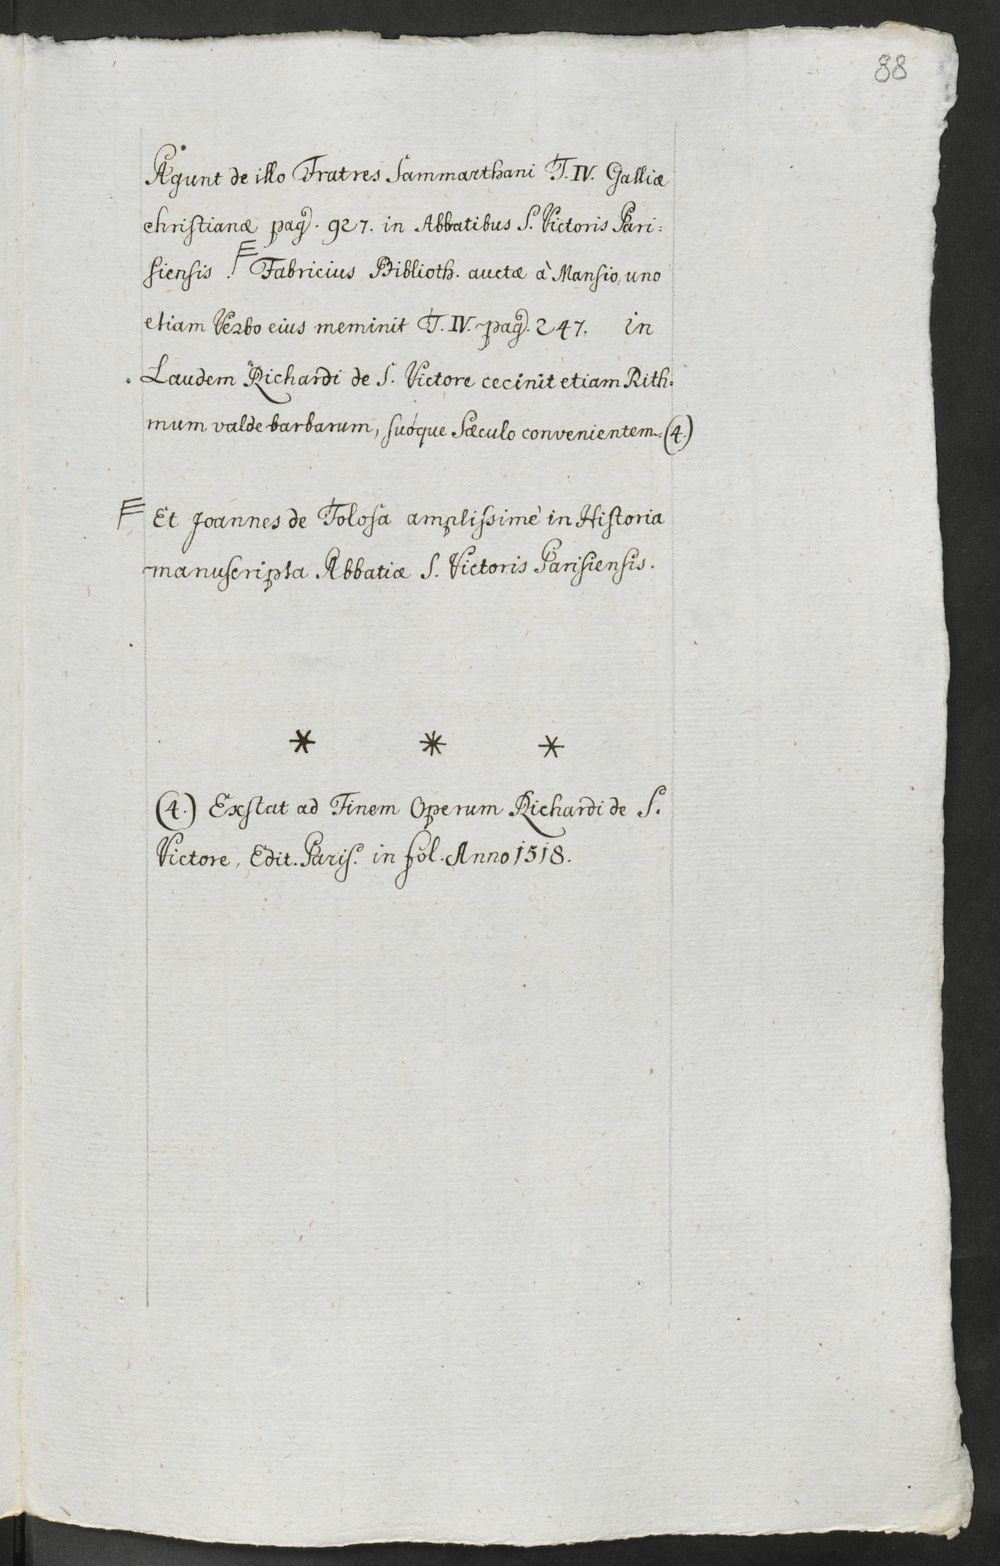 88
Agunt de illo Fratres Sammarthani T. IV. Galliæ
christianæ pag. 927. in Abbatibus S. Victoris Pari:
siensis. F Fabricius Biblioth. auctæ à Mansio, uno
etiam Verbo eius meminit T. IV. pag. 247. in
Laudem Richardi de S. Victore cecinit etiam Rith:
mum valde barbarum, suóque Sæculo convenientem. (4.)
F Et Joannes de Tolosa amplissimè in Historia
manuscripta Abbatiæ S. Victoris Parisiensis.
* * *
(4.) Exstat ad Finem Operum Richardi de S.
Victore, Edit. Paris. in fol. Anno 1518.